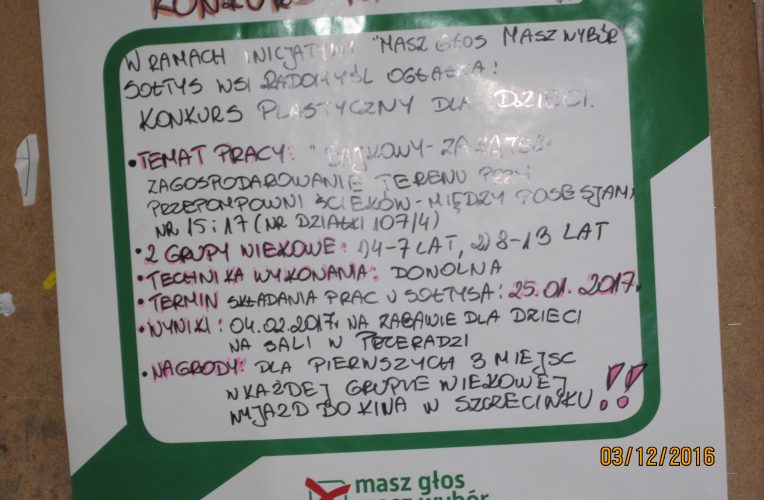 KONKURS
W RAMACH INICJATYWY "MASZ GŁOS MASZ WYBÓR"
SOŁTYS WSI RADOMYŚL OGŁASZA:
KONKURS PLASTYCZNY DLA DZIECI.
• TEMAT PRACY: "BAJKOWY-ZAKĄTEK
ZAGOSPODAROWANIE TERENU PRZY
PRZEPOMPOWNI ŚCIEKÓW-MIĘDZY POSESJAMI
NR 15 i 17 (NR DZIAŁKI 107/4)
• 2 GRUPY WIEKOWE: 1) 4-7 LAT, 2) 8-13 LAT
• TECHNIKA WYKONANIA: DOWOLNA
• TERMIN SKŁADANIA PRAC U SOŁTYSA: 25.01.2017r.
• WYNIKI: 04.02.2017r. NA ZABAWIE DLA DZIECI
NA SALI W PRZERADZI
• NAGRODY: DLA PIERWSZYCH 3 MIEJSC
W KAŻDEJ GRUPIE WIEKOWEJ
WYJAZD DO KINA W SZCZECINKU!!
03/12/2016
masz głos
masz wybór